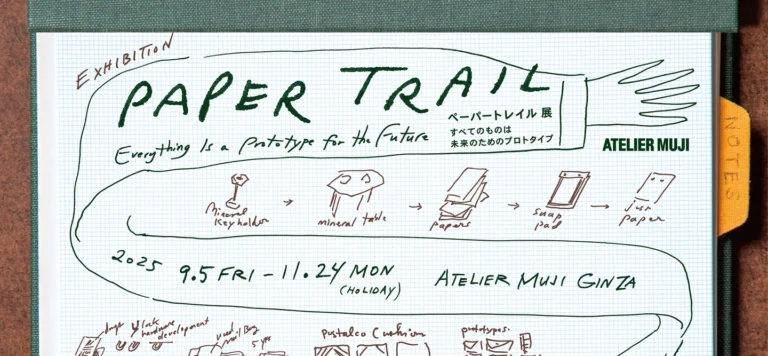 EXHIBITION
PAPER TRAIL
ペーパートレイル 展
Everything Is a Prototype for the Future
すべてのものは
未来のためのプロトタイプ
ATELIER MUJI
NOTES
mineral keyholder
mineral table
papers
snap pad
just paper
2025 9.5 FRI – 11.24 MON
(HOLIDAY)
ATELIER MUJI GINZA
lock
hardware
development
Postalco Cushion
prototypes: